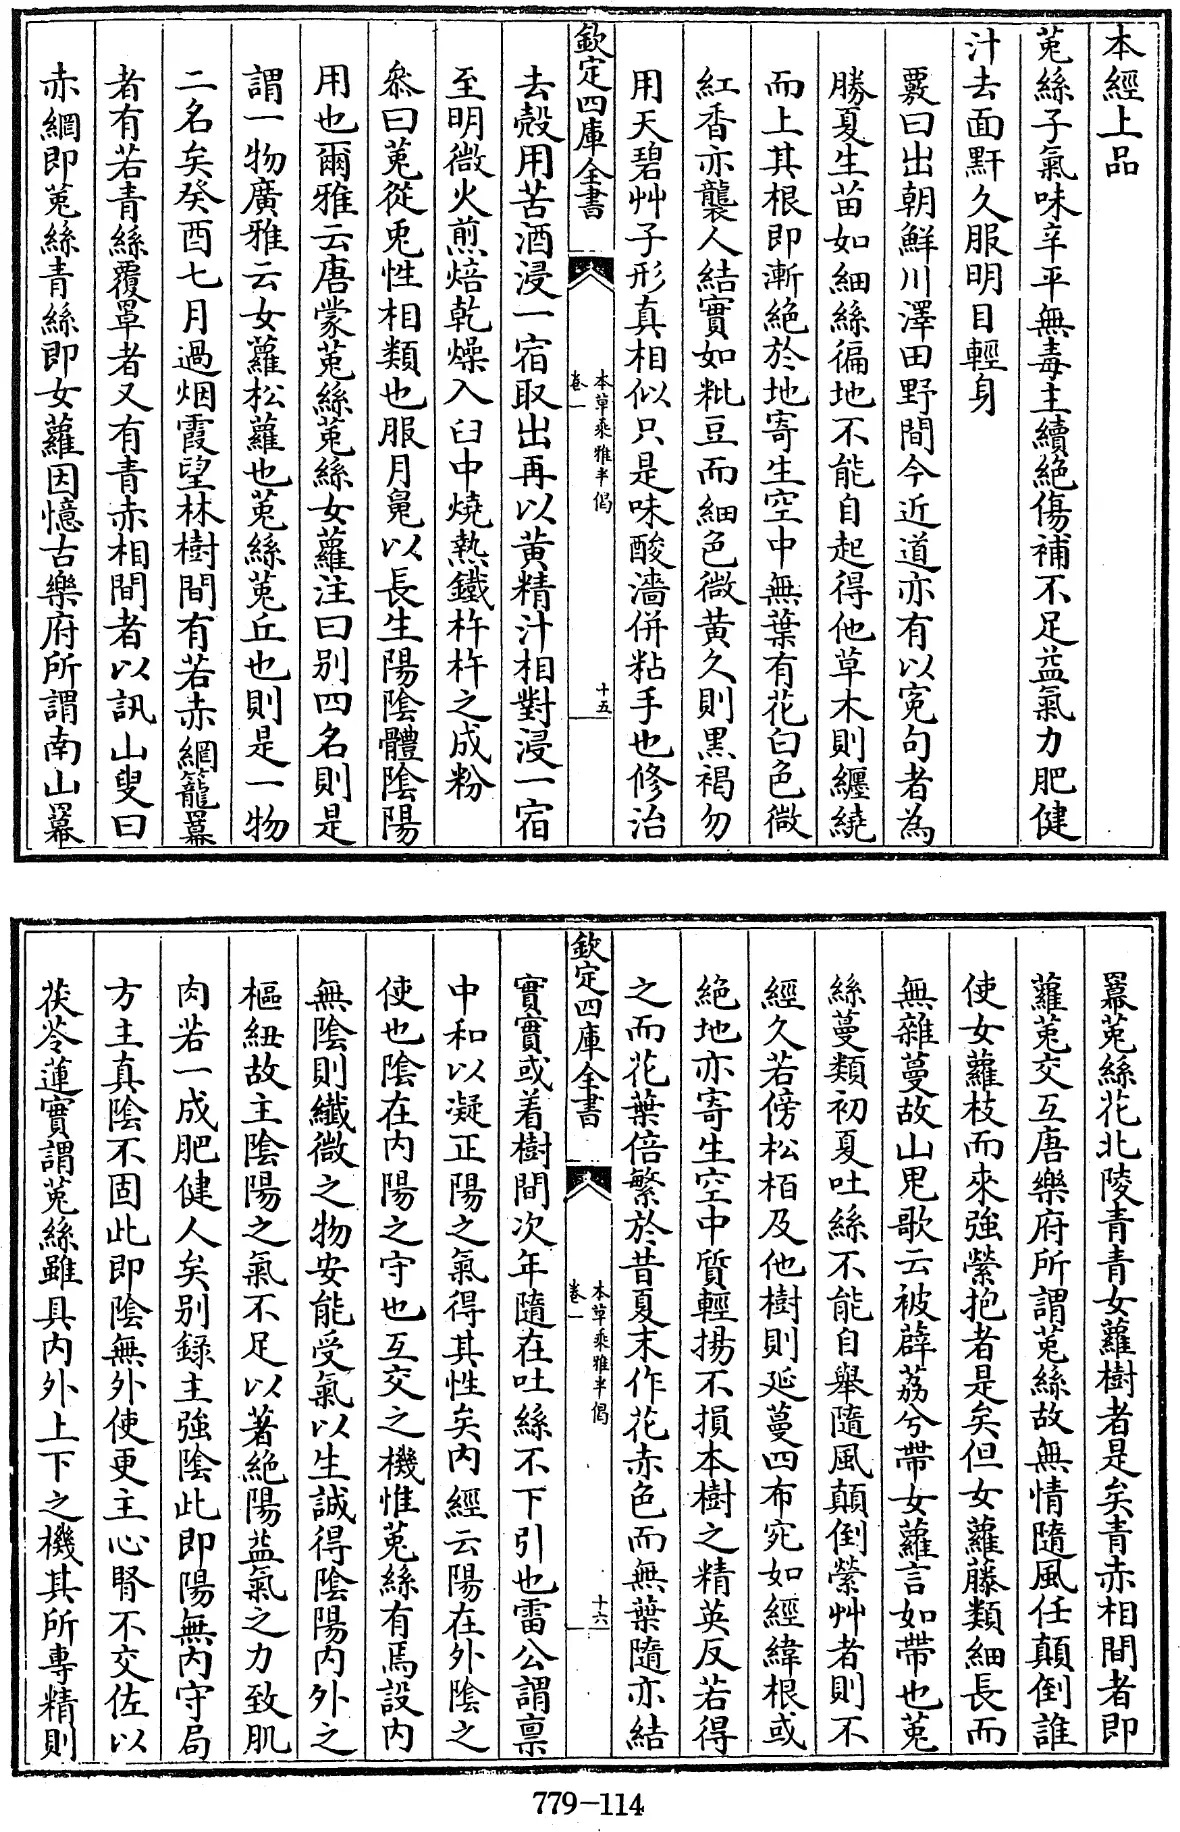 本經上品
菟絲子氣味辛平無毒主續絕傷補不足益氣力肥健
汁去面䵟久服明目輕身
覈曰出朝鮮川澤田野間今近道亦有以寃句者為
勝夏生苗如細絲徧地不能自起得他草木則纏繞
而上其根即漸絕於地寄生空中無葉有花白色微
紅香亦襲人結實如粃豆而細色微黃久則黑褐勿
用天碧艸子形真相似只是味酸濇併粘手也修治
欽定四庫全書
本草乘雅半偈
卷一
十五
去殼用苦酒浸一宿取出再以黃精汁相對浸一宿
至明微火煎焙乾燥入臼中燒熱鐵杵杵之成粉
叅曰菟從兎性相類也服月魄以長生陽陰體陰陽
用也爾雅云唐蒙菟絲菟絲女蘿注曰别四名則是
謂一物廣雅云女蘿松蘿也菟絲菟丘也則是一物
二名矣癸酉七月過烟霞望林樹間有若赤網籠羃
者有若青絲覆罩者又有青赤相間者以訊山叟曰
赤網即菟絲青絲即女蘿因憶古樂府所謂南山羃
羃菟絲花北陵青青女蘿樹者是矣青赤相間者即
蘿菟交互唐樂府所謂菟絲故無情隨風任顛倒誰
使女蘿枝而來強縈抱者是矣但女蘿藤類細長而
無雜蔓故山鬼歌云被薜荔兮帶女蘿言如帶也菟
絲蔓類初夏吐絲不能自舉隨風顛倒縈艸者則不
經久若傍松栢及他樹則延蔓四布宛如經緯根或
絕地亦寄生空中質輕揚不損本樹之精英反若得
之而花葉倍繁於昔夏末作花赤色而無葉隨亦結
欽定四庫全書
本草乘雅半偈
卷一
十六
實實或着樹間次年隨在吐絲不下引也雷公謂禀
中和以凝正陽之氣得其性矣内經云陽在外陰之
使也陰在内陽之守也互交之機惟菟絲有焉設内
無陰則纖微之物安能受氣以生誠得陰陽内外之
樞紐故主陰陽之氣不足以著絕陽益氣之力致肌
肉若一成肥健人矣别錄主強陰此即陽無内守局
方主真陰不固此即陰無外使更主心腎不交佐以
茯苓蓮實謂菟絲雖具内外上下之機其所專精則
779-114